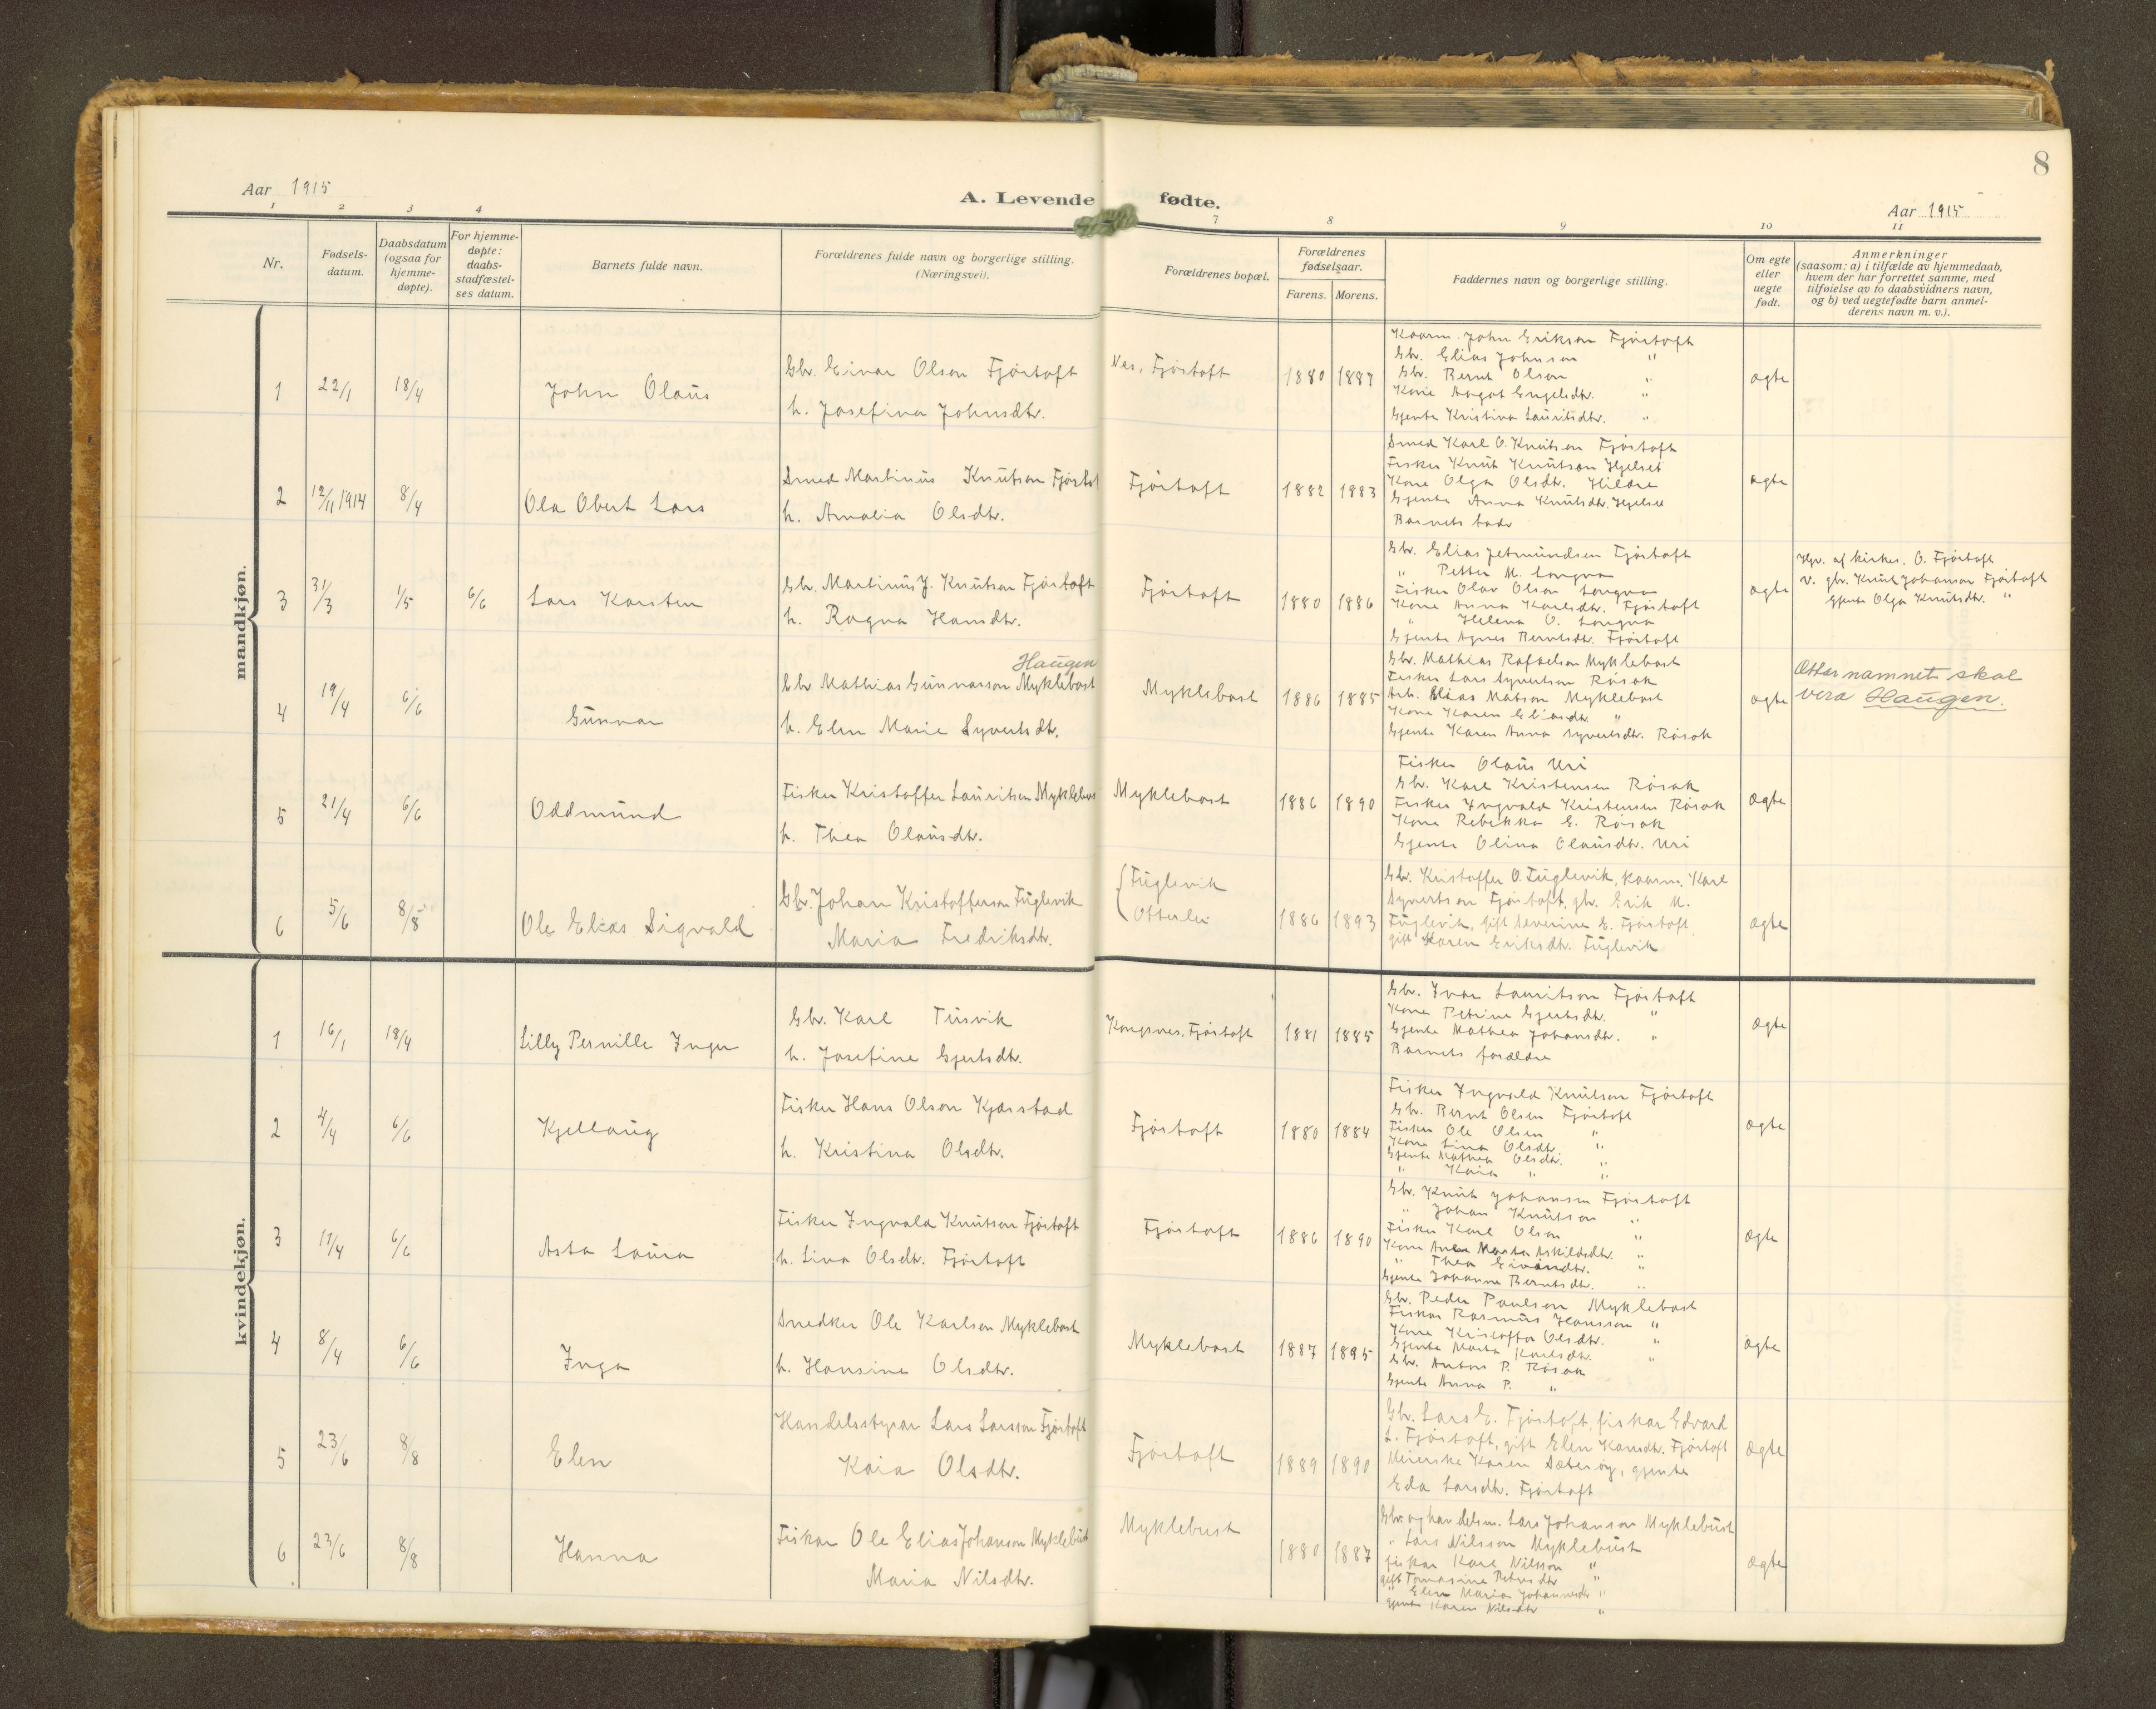 8
Aar 1915
A. Levende fødte.
Aar 1915
1 2 3 4 7 8 9 10 11
Nr.
Fødsels-
datum.
Daabsdatum
(ogsaa for
hjemme-
døpte).
For hjemme-
døpte:
daabs-
stadfæstel-
ses datum.
Barnets fulde navn.
Forældrenes fulde navn og borgerlige stilling.
(Næringsvei).
Forældrenes bopæl.
Forældrenes
fødselsaar.
Farens. Morens.
Faddernes navn og borgerlige stilling.
Om egte
eller
uegte
født.
Anmerkninger
(saasom: a) i tilfælde av hjemmedaab,
hvem der har forrettet samme, med
tilføielse av to daabsvidners navn,
og b) ved uegtefødte barn anmel-
derens navn m. v.).
mandkjøn.
1 22/1 18/4 John Olaus
Gbr. Einar Olsen Fjørtoft
h. Josefina Johnsdtr.
Nes, Fjørtoft 1880 1887
Kaarm. John Erikson Fjørtoft
Gbr. Elias Johnson "
Gbr. Bernt Olson "
Kone Aagot Engelsdtr. "
Gjente Kristina Lauritsdtr. "
ægte
2 12/11 1914 8/4 Ola Obert Lars
Smed Martinus Knutson Fjørtoft
h. Amalia Olsdtr.
Fjørtoft 1882 1883
Smed Karl O. Knutson Fjørtoft
Fisker Knut Knutson Hjelset
Kone Olga Olsdtr. Hildre
Gjente Anna Knutsdtr. Hjelset
Barnets fadr
ægte
3 31/3 1/5 6/6 Lars Karsten
Gbr. Martinus J. Knutson Fjørtoft
h. Ragna Hansdtr.
Fjørtoft 1880 1886
Gbr. Elias Jetmundsen Fjørtoft
" Petter M. Longva
Fisker Olav Olson Longva
Kone Anna Karlsdtr. Fjørtoft
" Helena O. Longva
Gjente Agnes Berntsdtr. Fjørtoft
ægte
Hjd. af kirkes. O. Fjørtoft
v. gbr. Knut Johanson Fjørtoft
Gjente Olga Knutsdtr. "
4 19/4 6/6 Gunnar
Haugen
Gbr Mathias Gunnarson Myklebost
h. Elen Marie Syvertsdtr.
Myklebost 1886 1885
Gbr. Mathias Rafaelson Myklebost
Fisker Lars Syvertson Røsok
Arb. Elias Matson Myklebost
Kone Karen Eliasdtr. "
Gjente Karen Anna Syvertsdtr. Røsok
ægte
Ættarnamnet skal
vera Haugen.
5 21/4 6/6 Oddmund
Fisker Kristoffer Lauritsen Myklebost
h. Thea Olausdtr.
Myklebost 1886 1890
Fisker Olaus Uri
Gbr. Karl Kristensen Røsok
Fisker Ingvald Kristensen Røsok
Kone Rebekka E. Røsok
Gjente Olina Olausdtr. Uri
ægte
6 5/6 8/8 Ole Elias Sigvald
Gbr. Johan Kristofferson Fuglevik
Maria Fredriksdtr.
Fuglevik
Otterlei
1886 1893
Gbr. Kristoffer O. Fuglevik, kaarm. Karl
Syvertson Fjørtoft, gbr. Erik M.
Fuglevik, gift Severine E. Fjørtoft
gift Karen Eriksdtr. Fuglevik
ægte
kvindekjøn.
1 16/1 18/4 Lilly Pernille Inger
Gbr. Karl Tusvik
h. Josefine Gjertsdtr.
Kongsnes, Fjørtoft 1881 1885
Gbr. Ivar Lauritson Fjørtoft
Kone Petrine Gjertsdtr. "
Gjente Mathea Johansdtr. "
Barnets forældre
ægte
2 4/4 6/6 Kjellaug
Fisker Hans Olson Kjærstad
h. Kristina Olsdtr.
Fjørtoft 1880 1884
Fisker Ingvald Knutson Fjørtoft
Gbr. Bernt Olsen Fjørtoft
Fisker Ole Olsen "
Kone Lina Olsdtr. "
Gjente Mathea Olsdtr. "
" Kaia " "
ægte
3 17/4 6/6 Asta Laura
Fisker Ingvald Knutson Fjørtoft
h. Lina Olsdtr. Fjørtoft
Fjørtoft 1886 1890
Gbr. Knut Johansen Fjørtoft
" Johan Knutson "
Fisker Karl Olson "
Kone Anna Marta Askildsdtr. "
" Thea Einarsdtr. "
Gjente Johanna Berntsdtr. "
ægte
4 8/4 6/6 Inga
Snedker Ole Karlsen Myklebost
h. Hansine Olsdtr.
Myklebost 1887 1895
Gbr. Peder Paulson Myklebost
Fisker Rasmus Hansson "
Kone Kristoffa Olsdtr. "
Gjente Marta Karlsdtr. "
Gbr. Anton P. Røsok
Gjente Anna P. "
ægte
5 23/6 8/8 Elen
Handelsstyrar Lars Larsson Fjørtoft
Kaia Olsdtr.
Fjørtoft 1889 1890
Gbr. Lars E. Fjørtoft, fiskar Edvard
L. Fjørtoft, gift Elen Hansdtr. Fjørtoft
Meierske Karen Sæterøy, gjente
Eda Larsdtr. Fjørtoft
ægte
6 23/6 8/8 Hanna
Fiskar Ole Elias Johanson Myklebust
Maria Nilsdtr.
Myklebust 1880 1887
Gbr. og handelsm. Lars Johanson Myklebust
" Lars Nilsson Myklebust
fiskar Karl Nilsson "
gift Tomasine Petersdtr "
" Elen Maria Johannesdtr "
gjente Karen Nilsdtr "
ægte